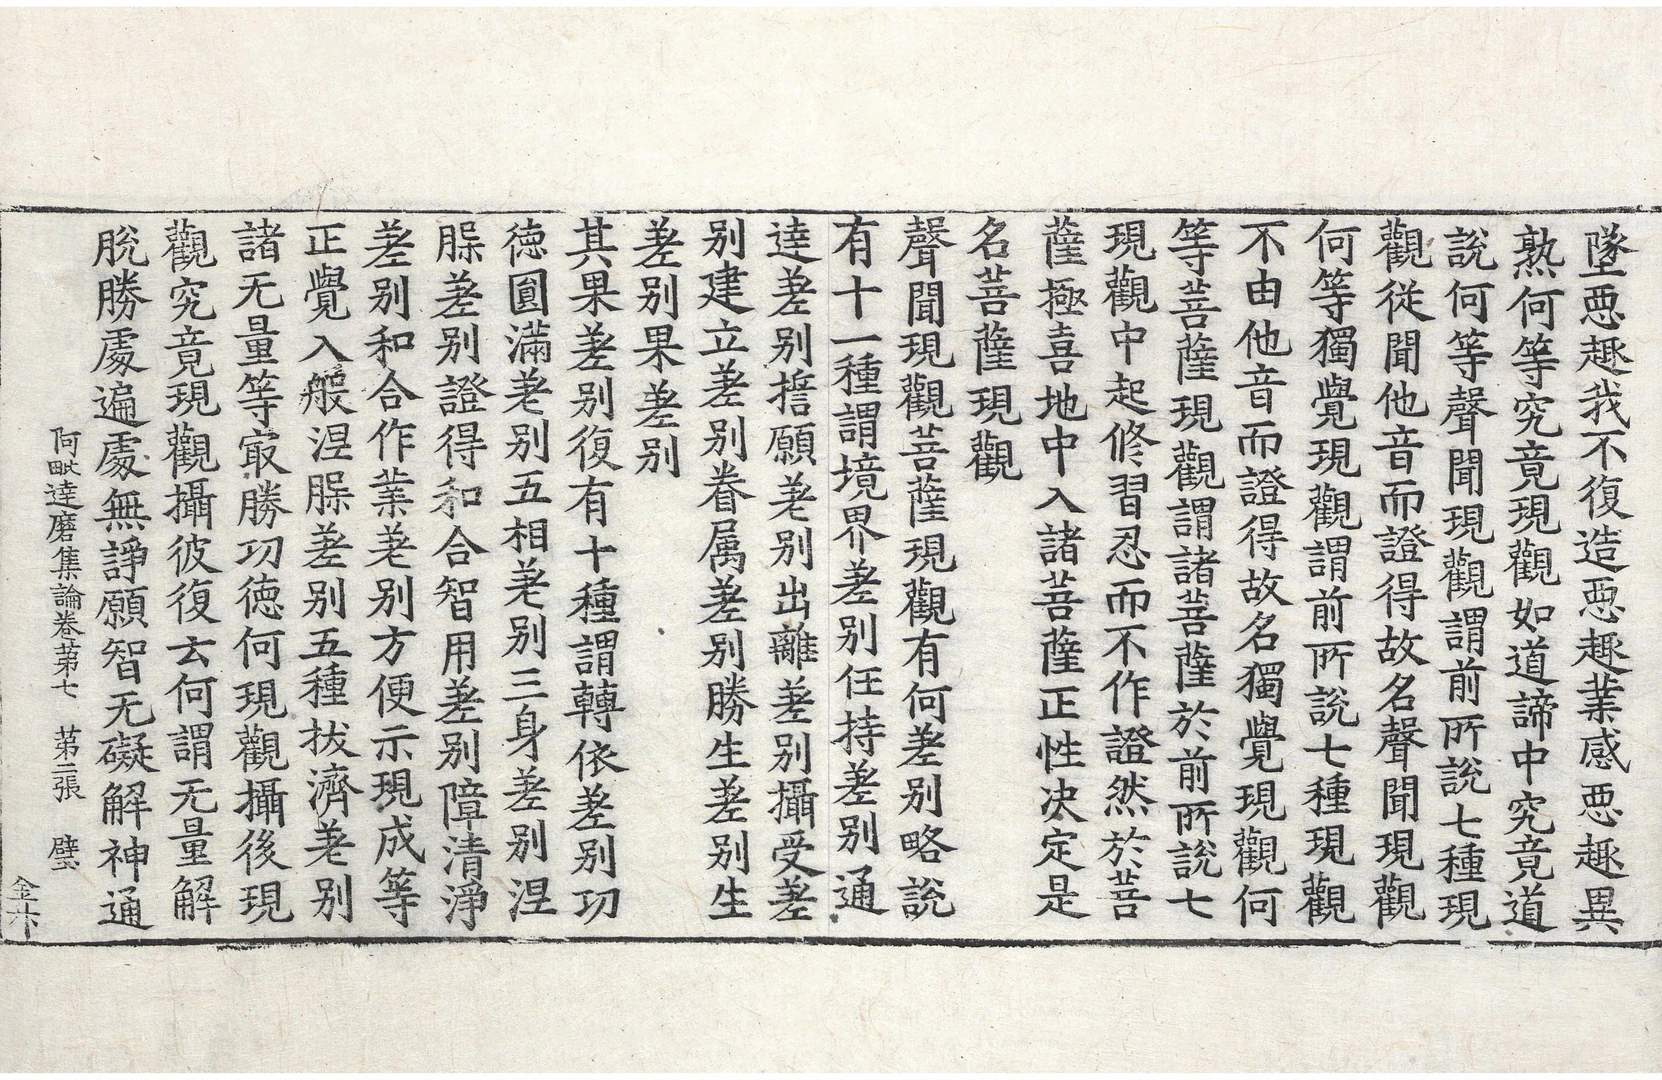 墜惡趣我不復造惡趣業感惡趣異
熟何等究竟現觀如道諦中究竟道
說何等聲聞現觀謂前所說七種現
觀從聞他音而證得故名聲聞現觀
何等獨覺現觀謂前所說七種現觀
不由他音而證得故名獨覺現觀何
等菩薩現觀謂諸菩薩於前所說七
現觀中起修習忍而不作證然於菩
薩極喜地中入諸菩薩正性決定是
名菩薩現觀
聲聞現觀菩薩現觀有何差別略說
有十一種謂境界差別任持差別通
達差別誓願差別出離差別攝受差
別建立差別眷属差別勝生差別生
差別果差別
其果差別復有十種謂轉依差別功
德圓滿差別五相差別三身差別涅
槃差別證得和合智用差別障清淨
差別和合作業差別方便示現成等
正覺入般涅槃差別五種拔濟差別
諸无量等㝡勝功德何現觀攝後現
觀究竟現觀攝彼復云何謂无量解
脫勝處遍處無諍願智无礙解神通
阿毗達磨集論卷第七 第二張 璧